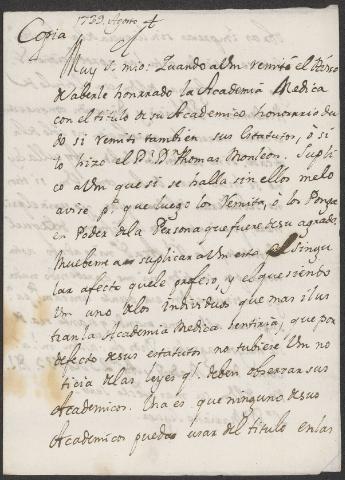 1739. Agosto
Copia
Muy S. mio: Quando a Vm remití el
haberle honrrado la Academia Medica
con el titulo de su Academico honorario du
do si remiti tambien sus Estatutos, o si
lo hizo el D.r D.n Thomas Monleon. Supli
co a Vm que si se halla sin ellos me lo
avise p.a que luego los remita, o los Ponga
en Poder de la Persona que fuere de su agrado.
Muebeme a suplicar a Vm esto el Singu
lar afecto que le profeso, y el que siento
Vm uno de los Individuos que mas ilus
tran la Academia Medica sentiria, que por
defecto de sus estatutos no tubiere Vm no
ticia de las leyes q.e deben observar sus
Academicos. Una es que ninguno de sus
Academicos pueda usar del titulo en las